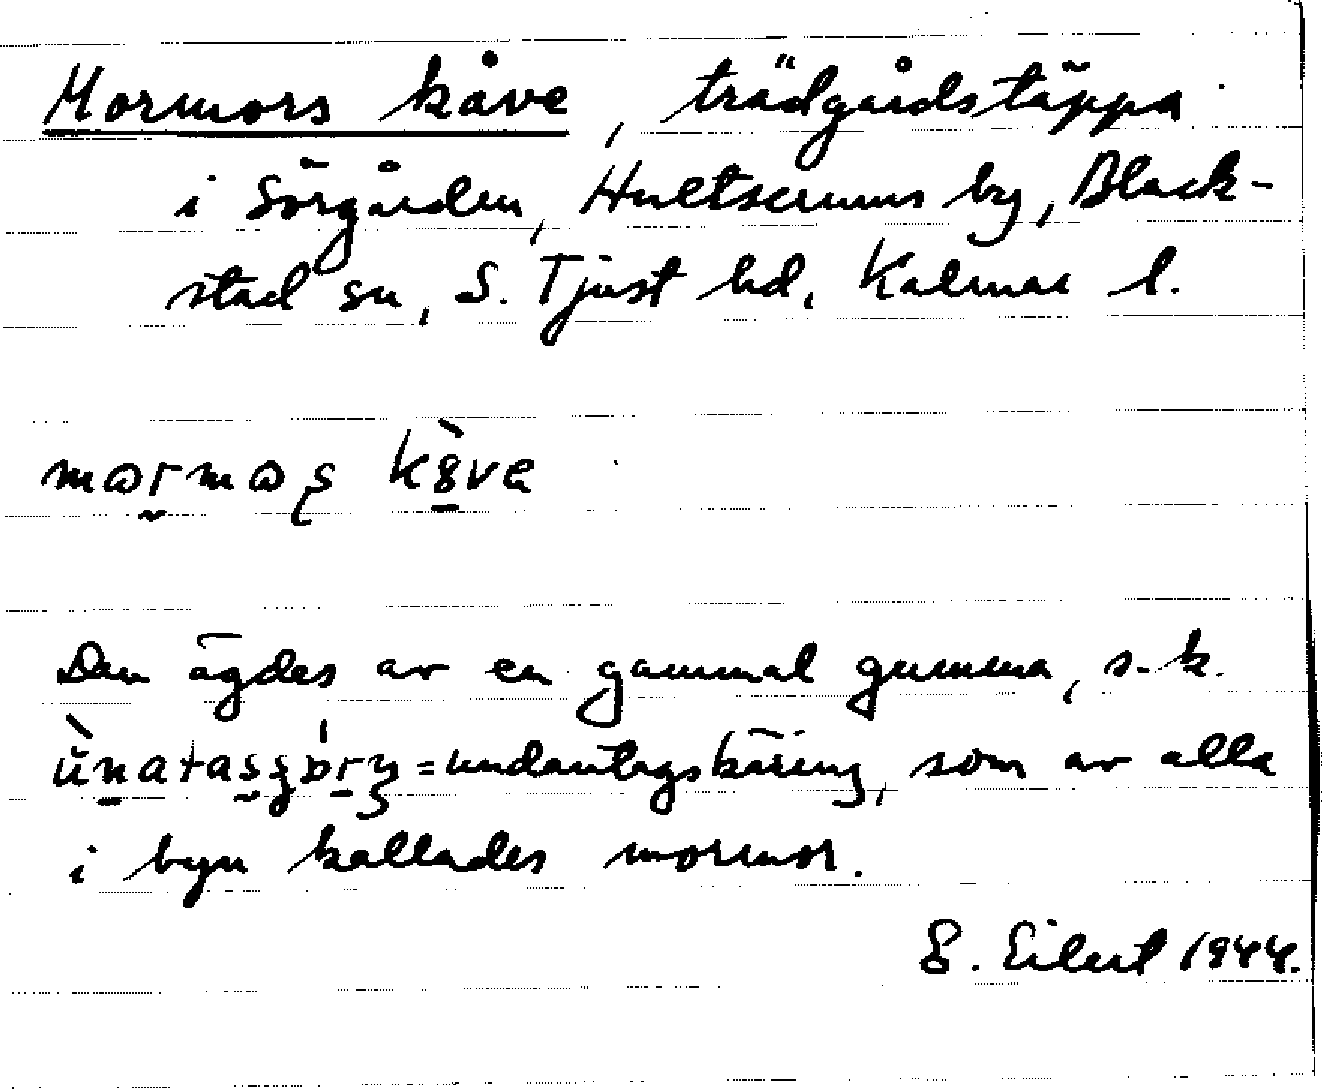 Mormors kåve, trädgårdstäppa
i Sörgården, Hultserums by, Black-
stad sn, S. Tjust hd, Kalmar l.
Den ägdes av en gammal gumma, s.k.
= undantagskäring, som av alla
i byn kallades mormor.
E. Eilert 1944.